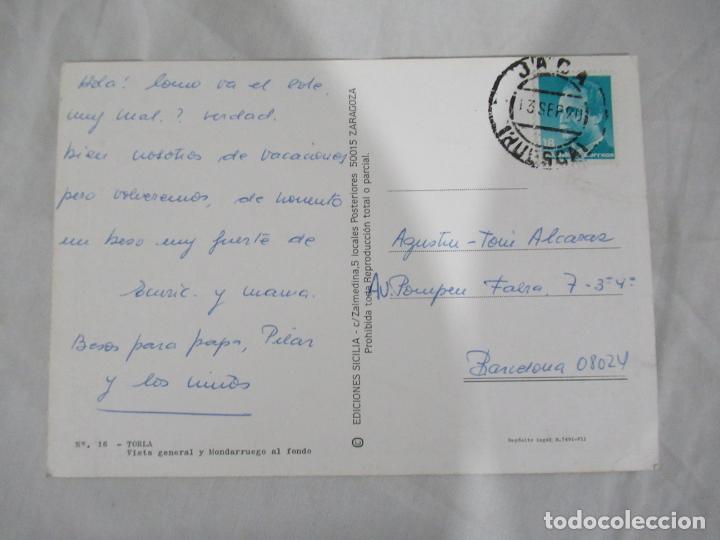 Hola! Como va el
muy mal.? verdad.
bien nosotros de vacaciones
pero volveremos, de momento
un beso muy fuerte de
Enric. y mama.
Besos para papa, Pilar
y los niños
Nº. 16 - TORLA
Vista general y Mondarruego al fondo
© EDICIONES SICILIA - c/Zalmedina,5 locales Posteriores 50015 ZARAGOZA
Prohibida toda Reproducción total o parcial.
JACA
13 SEP 90
(HUESCA)
Agustin-Toni Alcaraz
Av. Pompeu Fabra, 7-3º-4ª
Barcelona 08024
Depósito legal B.7491-XII
todocoleccion.net